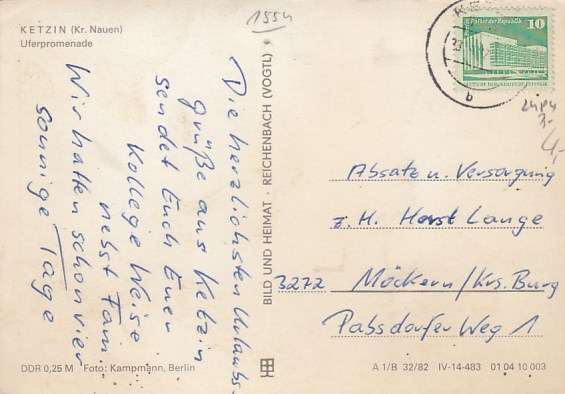 1554
KETZIN (Kr. Nauen)
Uferpromenade
Die herzlichsten Urlaubs-
grüße aus Ketzin
sendet Euch Euer
Kollege Weise
nebst Fam.
Wir hatten schon vier
sonnige Tage
BILD UND HEIMAT · REICHENBACH (VOGTL)
Palast der Republik 10
b
2484
Absatz u. Versorgung
z. H. Horst Lange
3272 Möckern/Krs. Burg
Pabsdorfer Weg 1
DDR 0,25 M Foto: Kampmann, Berlin
A 1/B 32/82 IV-14-483 01 04 10 003